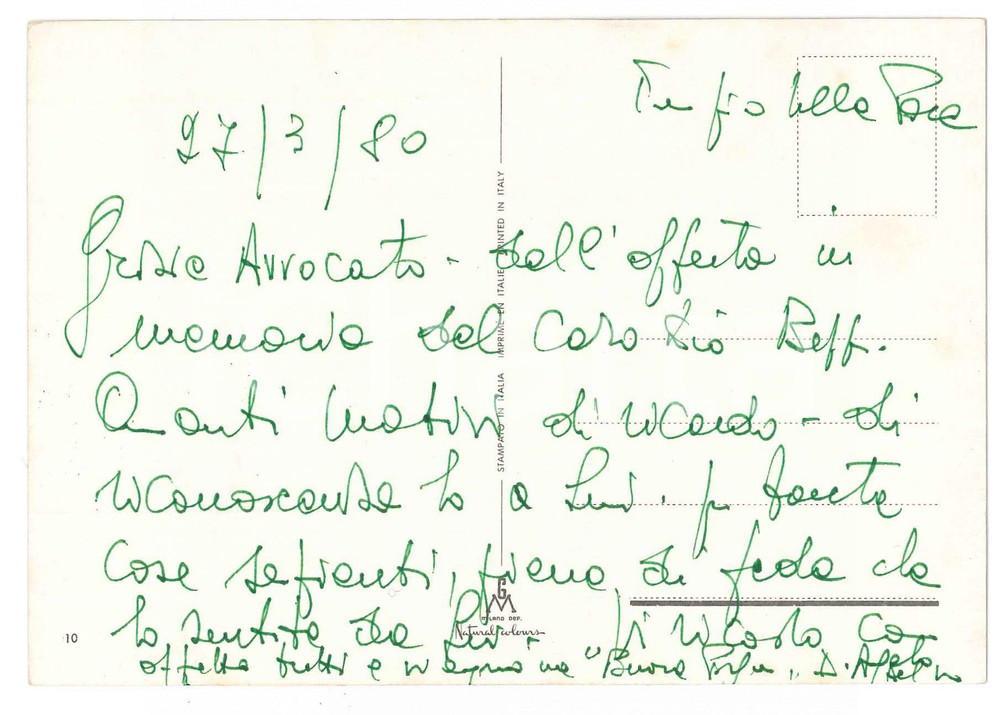 Tempio della Pace
27/3/80
Grazie Avvocato - dell'offerta in
memoria del Caro Zio Beff.
Quanti motivi di ricordo - di
riconoscenza ho a Lui. p. tante
Cose sapienti, piene di fede che
ho sentito da Lui. Vi ricordo con
affetto tutti e vi auguro una "Buona Pasqua" D.
STAMPATO IN ITALIA IMPRIMÉ EN ITALIE PRINTED IN ITALY
GM
MILANO DEP.
Natural colours
10